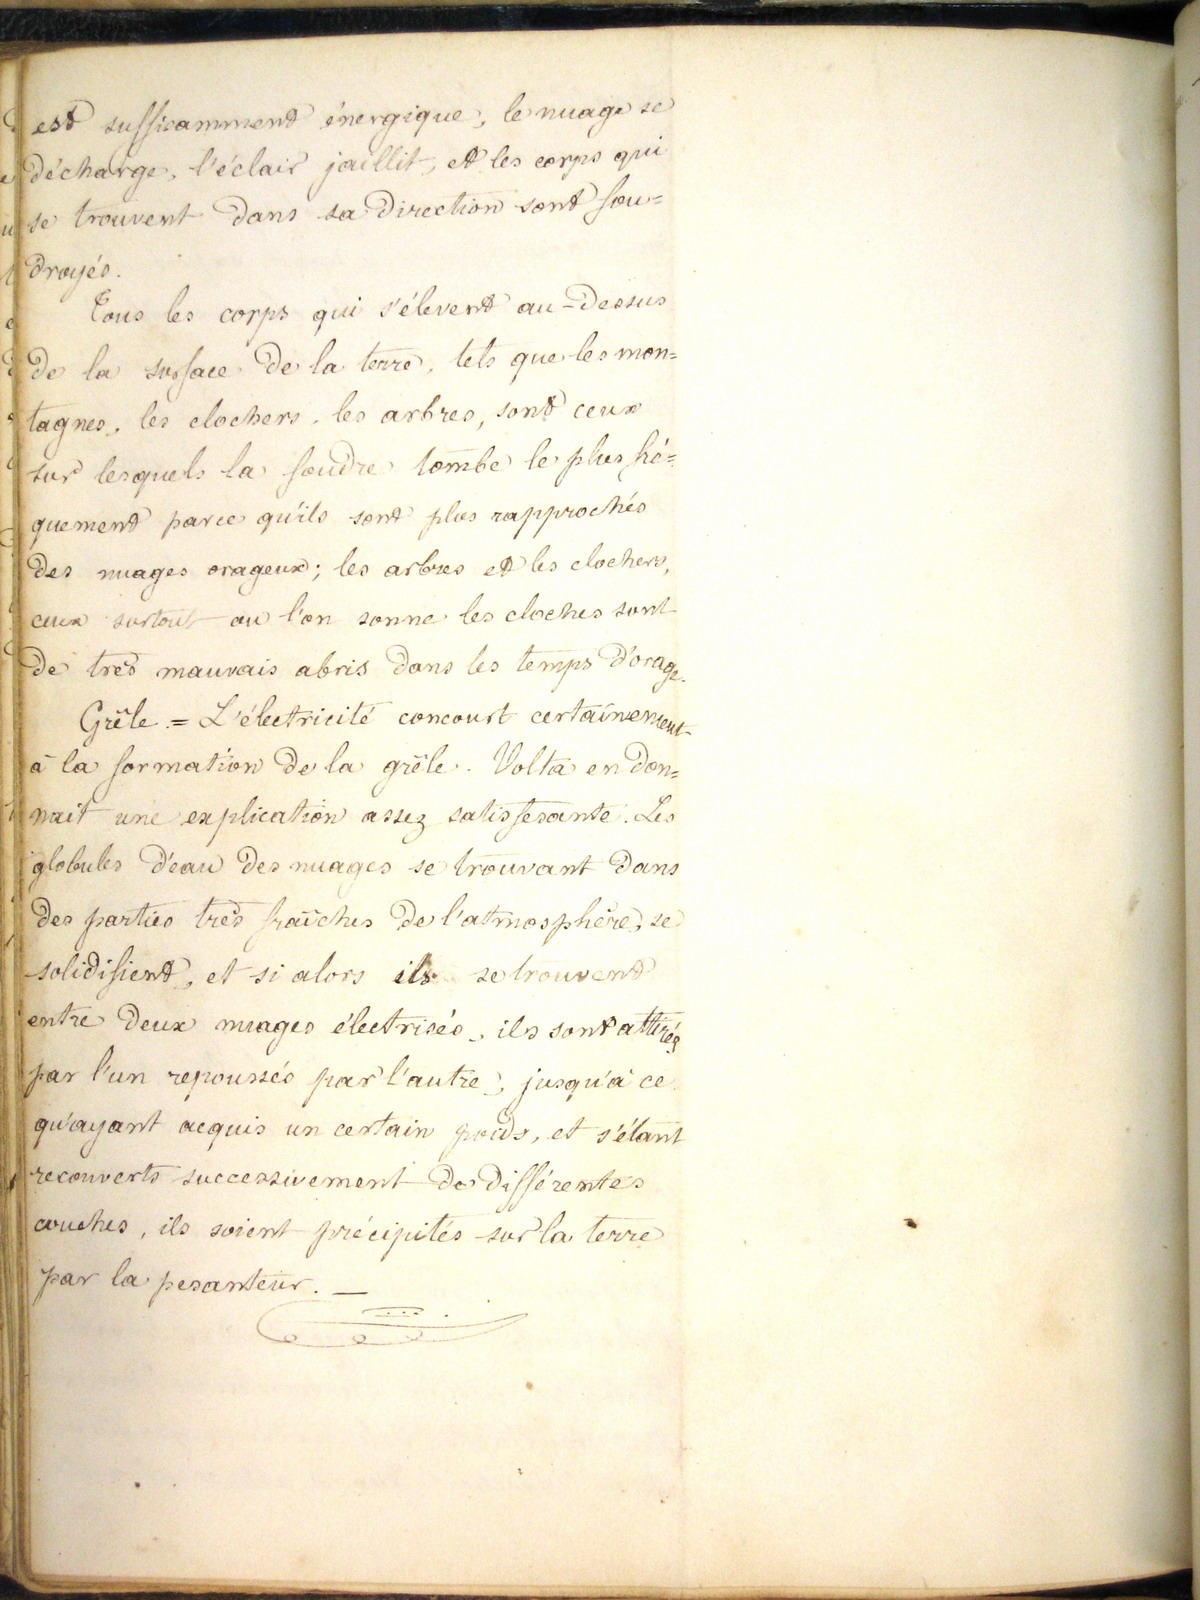 est suffisamment énergique, le nuage se
décharge, l'éclair jaillit, et les corps qui
se trouvent dans sa direction sont fou=
droyés.
Tous les corps qui s'élevent au-dessus
de la surface de la terre, tels que les mon=
tagnes, les clochers, les arbres, sont ceux
sur lesquels la foudre tombe le plus fré=
quement parce qu'ils sont plus rapprochés
des nuages orageux; les arbres et les clochers,
ceux surtout ou l'on sonne les cloches sont
de très mauvais abris dans les temps d'orage.
Grêle = L'électricité concourt certainement
à la formation de la grêle. Volta en don=
nait une explication assez satisfesante. Les
globules d'eau des nuages se trouvant dans
des parties très fraîches de l'atmosphère, se
solidifient, et si alors ils se trouvent
entre deux nuages électrisés, ils sont attirés
par l'un repoussés par l'autre, jusqu'à ce
qu'ayant acquis un certain poids, et s'étant
recouverts successivement de différentes
couches, ils soient précipités sur la terre
par la pesanteur. —